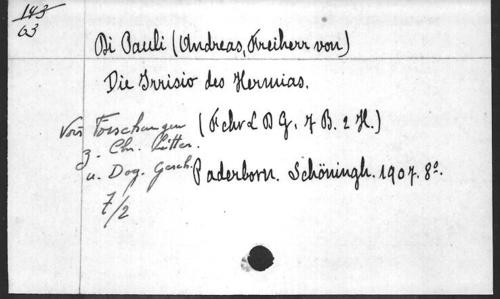 143
63
Di Pauli (Andreas, Freiherr von)
Die Irrisio des Hermias.
Von Forschungen (FchrLDG, 7 B. 2 H.)
z. Chr. Litter.
u. Dog. Gesch. Paderborn. Schöningh. 1907. 8º.
7/2